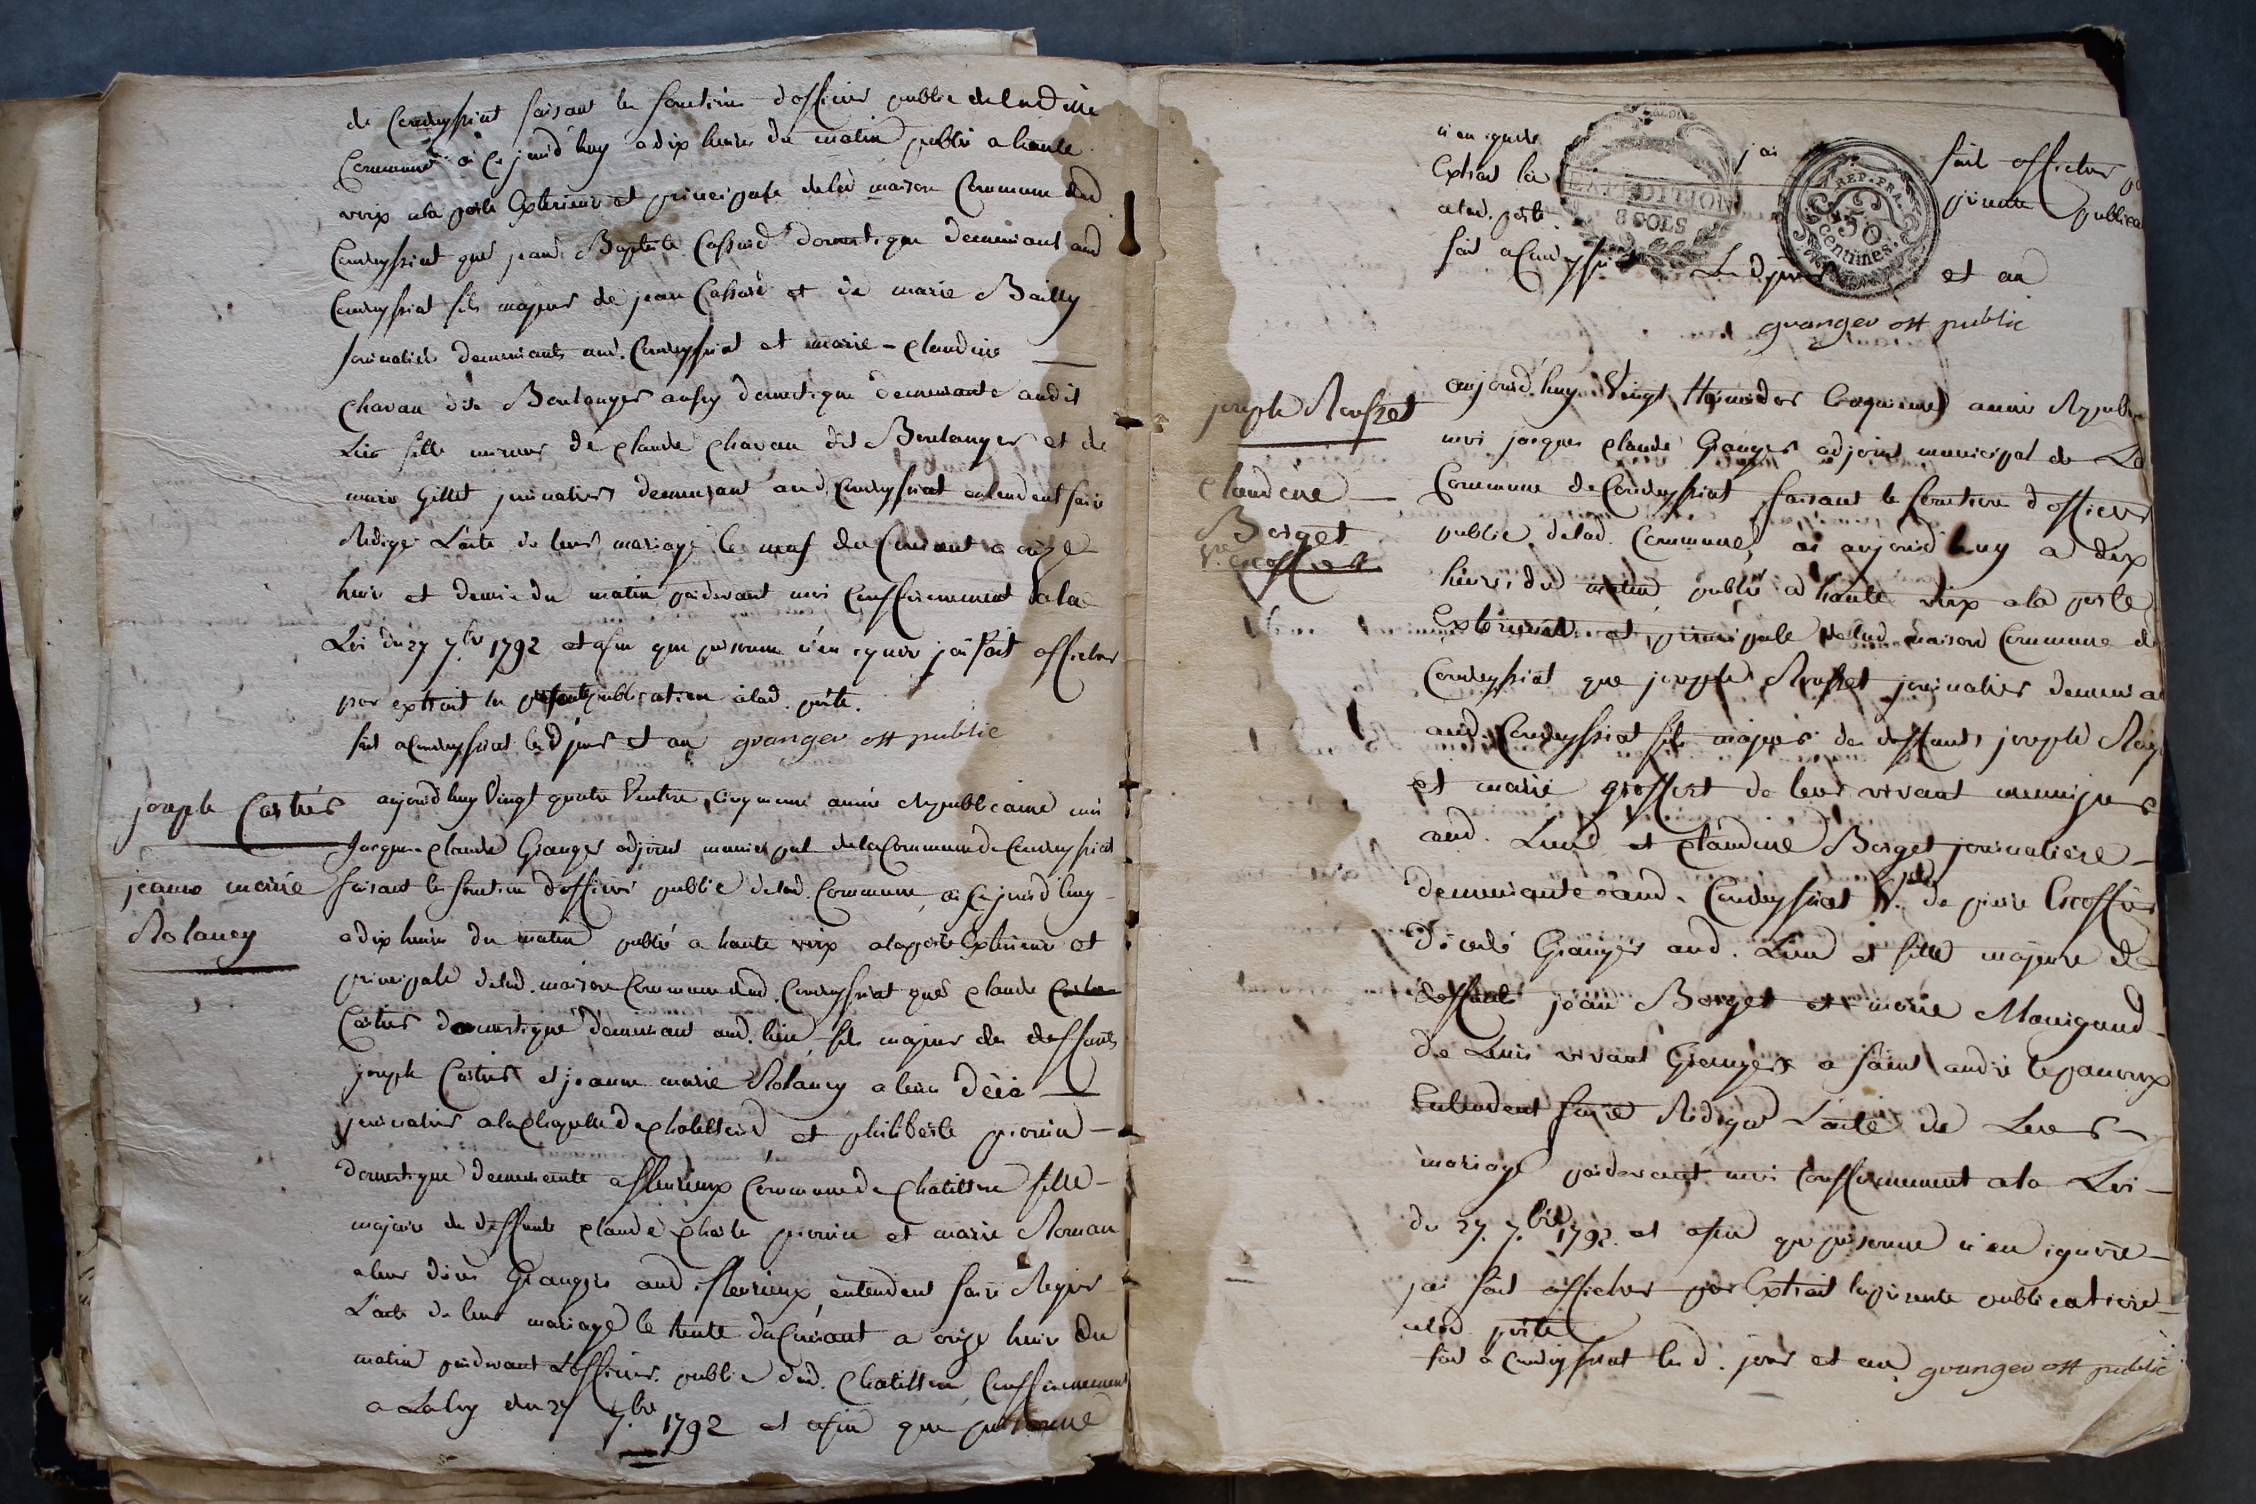 de Condeyssiat faisant les fonctions d'officier public de lad dite
Commune ai ce jourd'huy a dix heures du matin publié a haute
voix a la porte Exterieure et principale de la maison Commune dud
Condeyssiat que jean Baptiste Cassard domestique demeurant aud
Condeyssiat fils majeur de jean Cassard et de marie Bailly
journalier demeurants aud. Condeyssiat et marie - claudine
Chavan dite Boulanger aussy domestique demeurante audit
Lieu fille mineure de claude Chavan dit Boulanger et de
marie Gillet journaliers demeurant aud. Condeyssiat entendent faire
Rediger L'acte de leur mariage le neuf du Courant a onze
heure et demie du matin pardevant moi Confformement a la
Loi du 27 7.bre 1792 et afin que personne n'en ignore jai fait afficher
par extrait la presente publication a lad. porte.
fait a Condeyssiat led jour et an granger off public
joseph Cartier
jeanne marie
Rolancy
aujourd'huy Vingt quatre Ventose, Cinquieme année Republicaine moi
Jacques claude Granger adjoint municipal de la Commune de Condeyssiat
faisant les fonction d'officier public de lad. Commune, ai ce jourd'huy
a dix heures du matin publié a haute voix a la porte Exterieure et
principale de lad. maison Commune dud. Condeyssiat que claude
Cartier domestique demeurant aud. lieu fils majeur des deffunts
joseph Cartier et jeanne marie Rolancy a leur décé
journalier a la Chapelle de chatillond et philiberte pionin
domestique demeurante a fleurieux Commune de chatillon fille
majeure de deffunts claude charle pionin et marie Roman
a leur décés Grangers aud. fleurieux, entendent faire Rediger
L'acte de leur mariage le trente du Courant a onze heure du
matin pardevant L'officier public dud. chatillon, Confformement
a La loy du 27 7.bre 1792 et afin que personne
n'en ignore jai fait afficher
Extrait la presente publica
a lad. porte
fait a Condeyssiat Led jour et an
granger off public
EXPEDITION
REP. FRA.
50
centimes.
joseph Rousset
claudine
Borget
V.e Escoffier
aujourd'huy Vingt Cinquieme année Republi
moi jacques claude Granger adjoint municipal de La
Commune de Condeyssiat faisant les fonction d'officier
public de lad. Commune, ai aujourd'huy a dix
heures du matin publié a haute voix a la porte
Exterieure et principale de lad. maison Commune de
Condeyssiat que joseph Rousset journalier demeura
aud. Condeyssiat fils majeur de deffunts joseph
et marie groffert de leur vivant
aud. Lieu et claudine Borget journaliere
demeurante aud. Condeyssiat V.e de pierre Escoffier
décédé Granger aud. Lieu et fille majeure de
deffunt jean Borget et marie Manigand
de Leurs vivant Grangers a saint andré le panoux
Entendent faire Rediger L'acte de Leur
mariage pardevant moi Conffermement a la Loi
du 27. 7.bre 1792. et afin que personne n'en ignore
jai fait afficher par Extrait la presente publication
a lad porte
fait a Condeyssiat led. jour et an granger off public